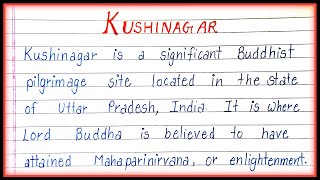 KUSHINAGAR
Kushinagar is a significant Buddhist
pilgrimage site located in the state
of Uttar Pradesh, India. It is where
Lord Buddha is believed to have
attained Mahaparinirvana, or enlightenment.